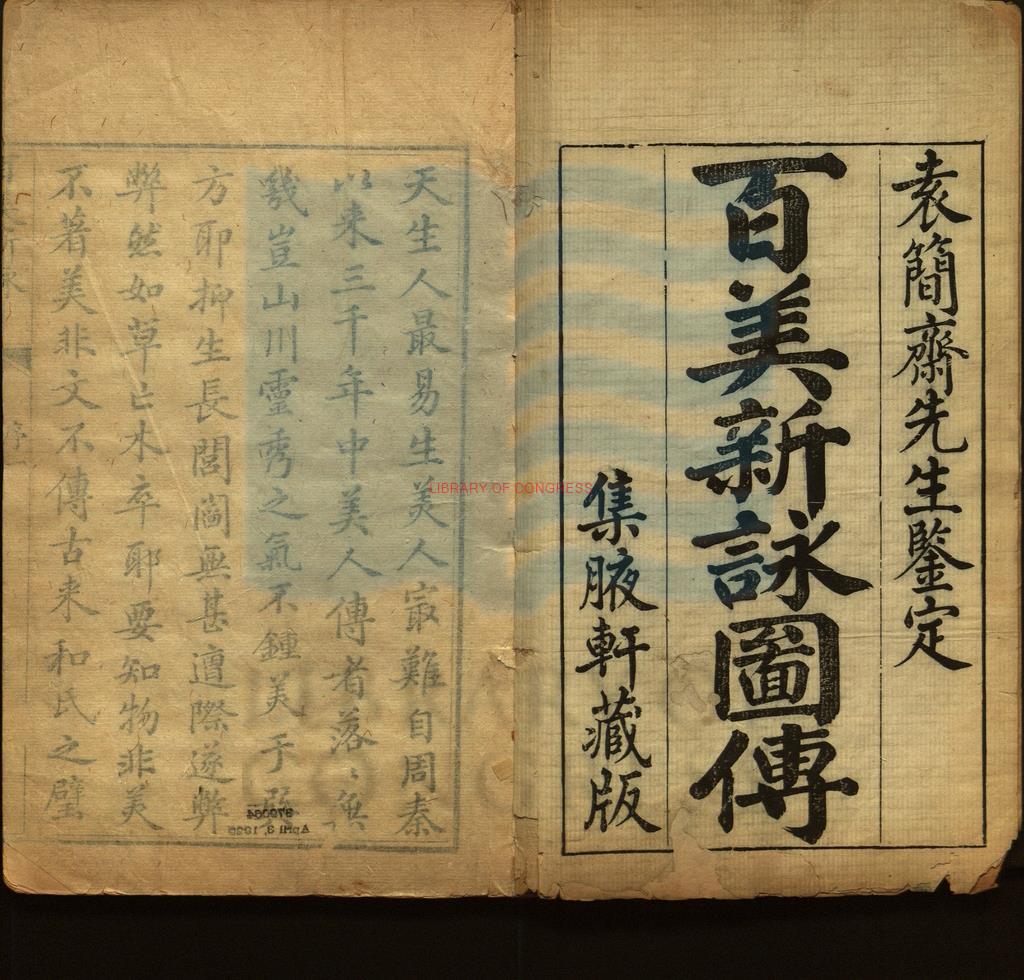 袁簡齋先生鑒定
百美新詠圖傳
集腋軒藏版
天生人最易生美人寂難自周秦
以来三千年中美人傳者落〻無
幾豈山川靈秀之氣不鍾美于
方耶抑生長閭阎無甚遭際遂弊
弊然如草亡木卒耶要知物非美
不著美非文不傳古来和氏之璧
LIBRARY OF CONGRESS
April 3, 1939